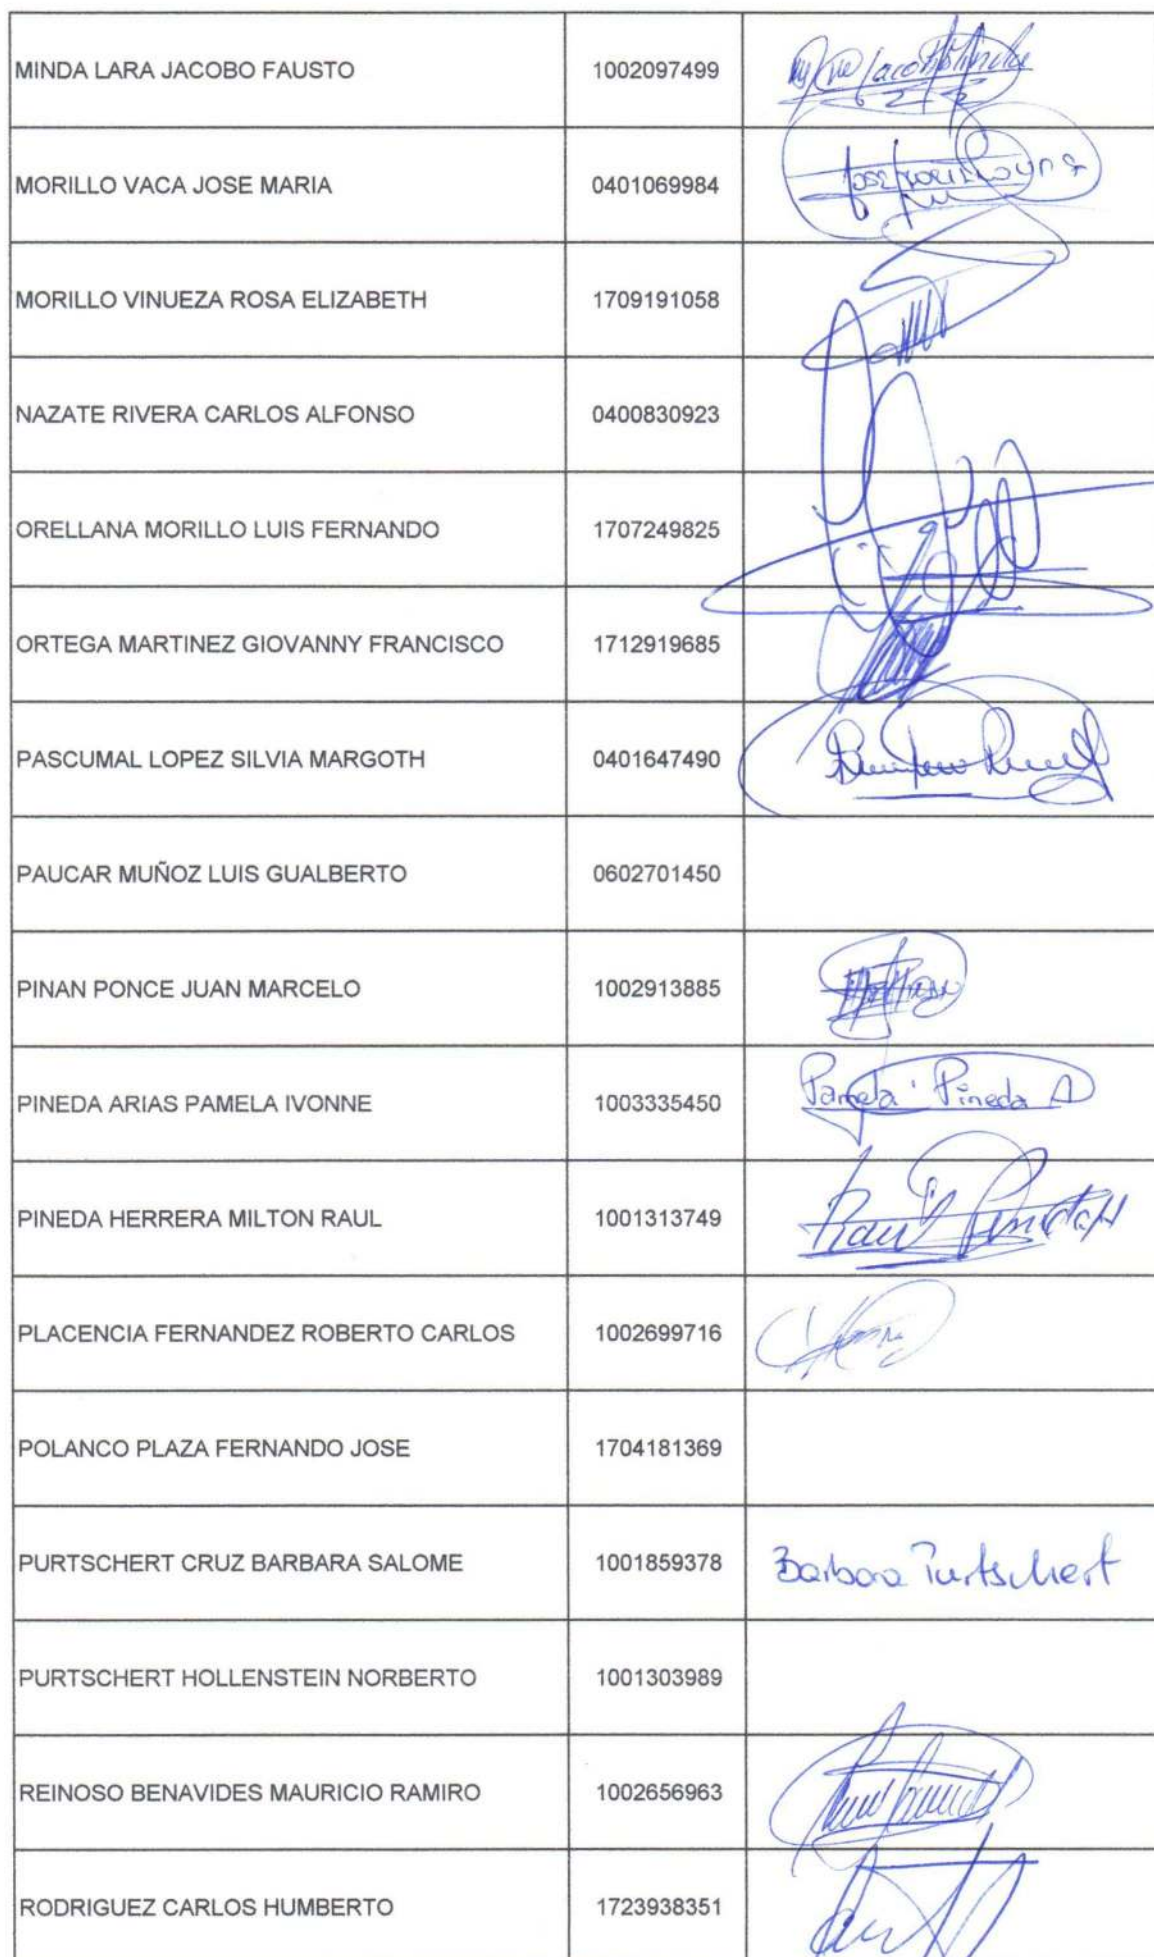 MINDA LARA JACOBO FAUSTO 1002097499
MORILLO VACA JOSE MARIA 0401069984
MORILLO VINUEZA ROSA ELIZABETH 1709191058
NAZATE RIVERA CARLOS ALFONSO 0400830923
ORELLANA MORILLO LUIS FERNANDO 1707249825
ORTEGA MARTINEZ GIOVANNY FRANCISCO 1712919685
PASCUMAL LOPEZ SILVIA MARGOTH 0401647490
PAUCAR MUÑOZ LUIS GUALBERTO 0602701450
PINAN PONCE JUAN MARCELO 1002913885
PINEDA ARIAS PAMELA IVONNE 1003335450 Pamela Pineda A
PINEDA HERRERA MILTON RAUL 1001313749 Raul Pineda H
PLACENCIA FERNANDEZ ROBERTO CARLOS 1002699716
POLANCO PLAZA FERNANDO JOSE 1704181369
PURTSCHERT CRUZ BARBARA SALOME 1001859378 Barbara Purtschert
PURTSCHERT HOLLENSTEIN NORBERTO 1001303989
REINOSO BENAVIDES MAURICIO RAMIRO 1002656963
RODRIGUEZ CARLOS HUMBERTO 1723938351